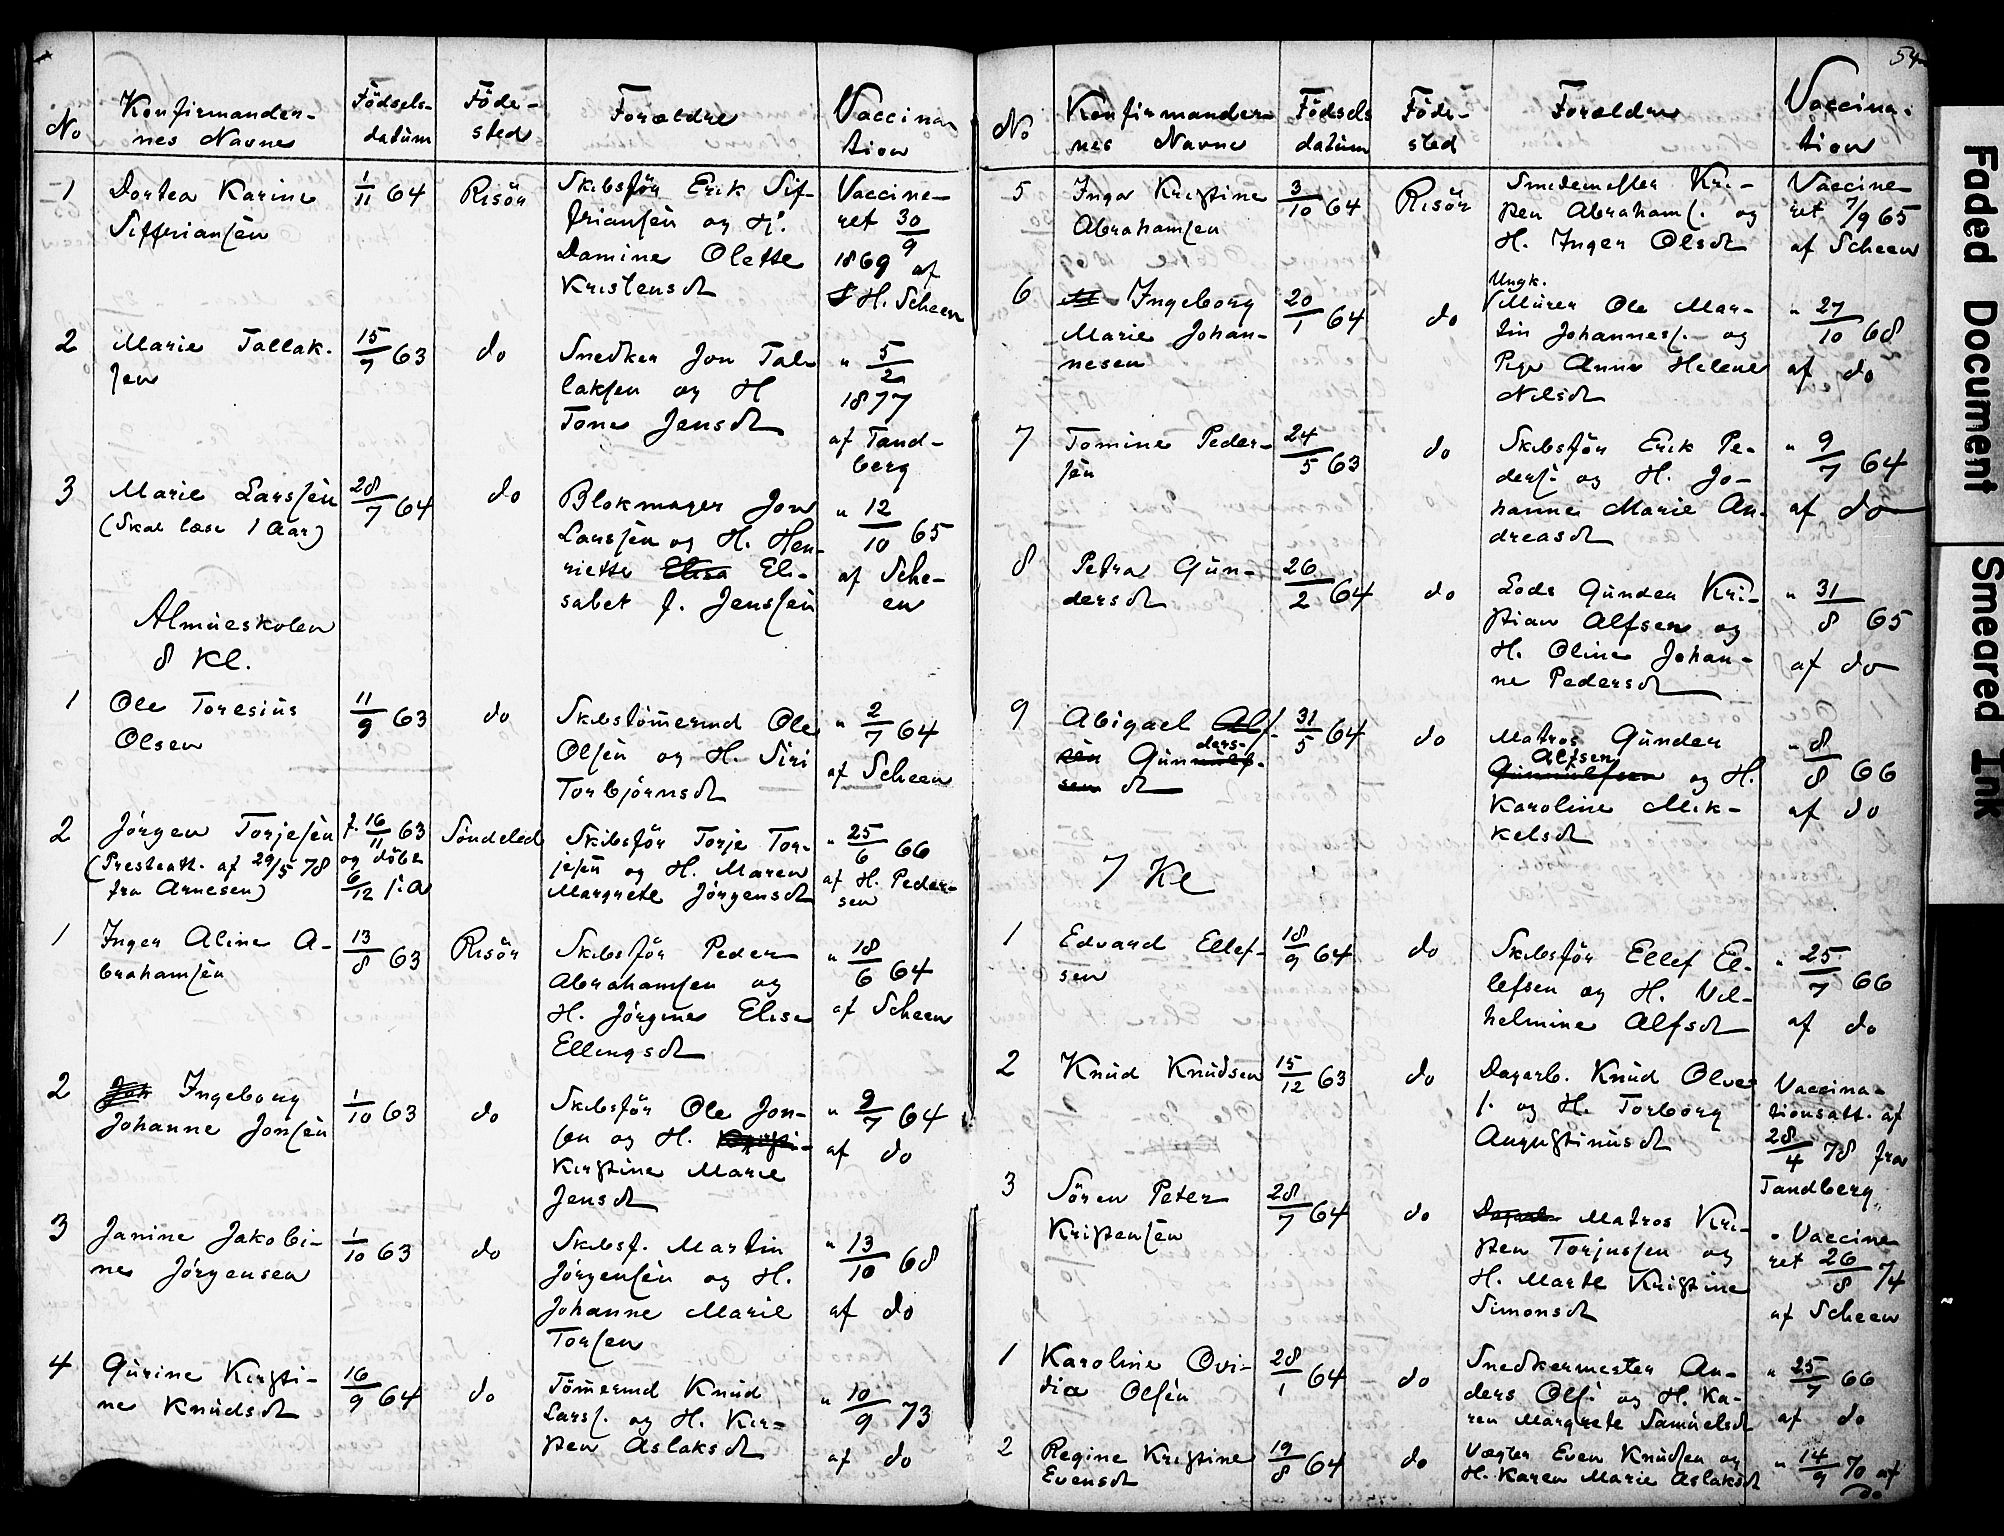 54
No
Konfirmander-
nes Navne
Födsels-
datum
Föde-
sted
Forældre
Vaccina-
tion
1
Dortea Karine
Siffriansen
1/11 64
Risör
Skibsför Erik Sif-
friansen og H.
Damine Olette
Kristensdt
Vaccine-
ret 30/9
1869 af
H. Scheen
2
Marie Tallak-
sen
15/7 63
do
Snedker Jon Tal-
laksen og H
Tone Jensdt
" 5/2
1877
af Tand-
berg
3
Marie Larssen
(Skal læse 1 Aar)
28/7 64
do
Blokmager Jon
Larssen og H. Hen-
riette Elisa Eli-
sabet f. Jenssen
" 12/10 65
af Sche-
en
Almueskolen
8 Kl.
1
Ole Toresius
Olsen
11/9 63
do
Skibstömermd Ole
Olsen og H. Siri
Torbjörnsdt
" 2/7 64
af Scheen
2
Jörgen Torjesen
(Presteatt. af 29/5 78
fra Arnesen)
f. 16/11 63
og döbt
6/12 s. a
Söndeled
Skibsför Torje Tor-
jesen og H. Maren
Margrete Jörgensdt
" 25/6 66
af H. Peder-
sen
1
Inger Aline A-
brahamsen
13/8 63
Risör
Skibsför Peder
Abrahamsen og
H. Jörgine Elise
Ellingsdt
" 18/6 64
af Scheen
2
Ingeborg
Johanne Jonsen
1/10 63
do
Skibsför Ole Jon-
sen og H.
Kirstine Marie
Jensdt
" 9/7 64
af do
3
Janine Jakobi-
ne Jörgensen
1/10 63
do
Skibsf. Martin
Jörgensen og H.
Johanne Marie
Torsen
" 13/10 68
af do
4
Gurine Kirsti-
ne Knudsdt
16/9 64
do
Tömermd Knud
Larss. og H. Kir-
sten Aslaksdt
" 10/9 73
af do
No
Konfirmander-
nes Navne
Födsels
datum
Föde-
sted
Forældre
Vaccina-
tion
5
Inga Kristine
Abrahamsen
3/10 64
Risör
Smedemester Kri-
sten Abrahams. og
H. Inger Olsdt
Vaccine-
ret 7/9 65
af Scheen
6
Ingeborg
Marie Johan-
nesen
20/1 64
do
Ungk.
Murer Ole Mar-
tin Johanness. og
Pige Anne Helene
Nilsdt
" 27/10 68
af do
7
Tomine Peder-
sen
24/5 63
do
Skibsför Erik Pe-
ders. og H. Jo-
hanne Marie An-
dreasdt
" 9/7 64
af do
8
Petra Gun-
dersdt
26/2 64
do
Lods Gunder Kri-
stian Alfsen og
H. Oline Johan-
ne Pedersdt
" 31/8 65
af do
9
Abigael Alf-
sen Gunnulf-
ders-
sen dt
31/5 64
do
Matros Gunder
Alfsen
Gunnulfsen og H.
Karoline Mik-
kelsdt
" 8/8 66
af do
7 Kl
1
Edvard Ellef-
sen
18/9 64
do
Skibsför Ellef El-
lefsen og H. Vil-
helmine Alfsdt
" 25/7 66
af do
2
Knud Knudsen
15/12 63
do
Dagarb. Knud Olve
s. og H. Torborg
Augustinusdt
Vaccina-
tionsatt. af
28/4 78 fra
Tandberg
3
Sören Peter
Kristensen
28/7 64
do
Dagarb. Matros Kri-
sten Torjussen og
H. Marte Kristine
Simonsdt
" Vaccine
ret 26/8 74
af Scheen
1
Karoline Ovi-
dia Olsen
28/1 64
do
Snedkermester An-
ders Ols. og H. Ka-
ren Margrete Samuelsdt
" 25/7 66
af do
2
Regine Kristine
Evensdt
19/8 64
do
Vægter Even Knudsen og
H. Karen Marie Aslaksdt
" 14/9 70 af
do
Faded Document
Smeared Ink